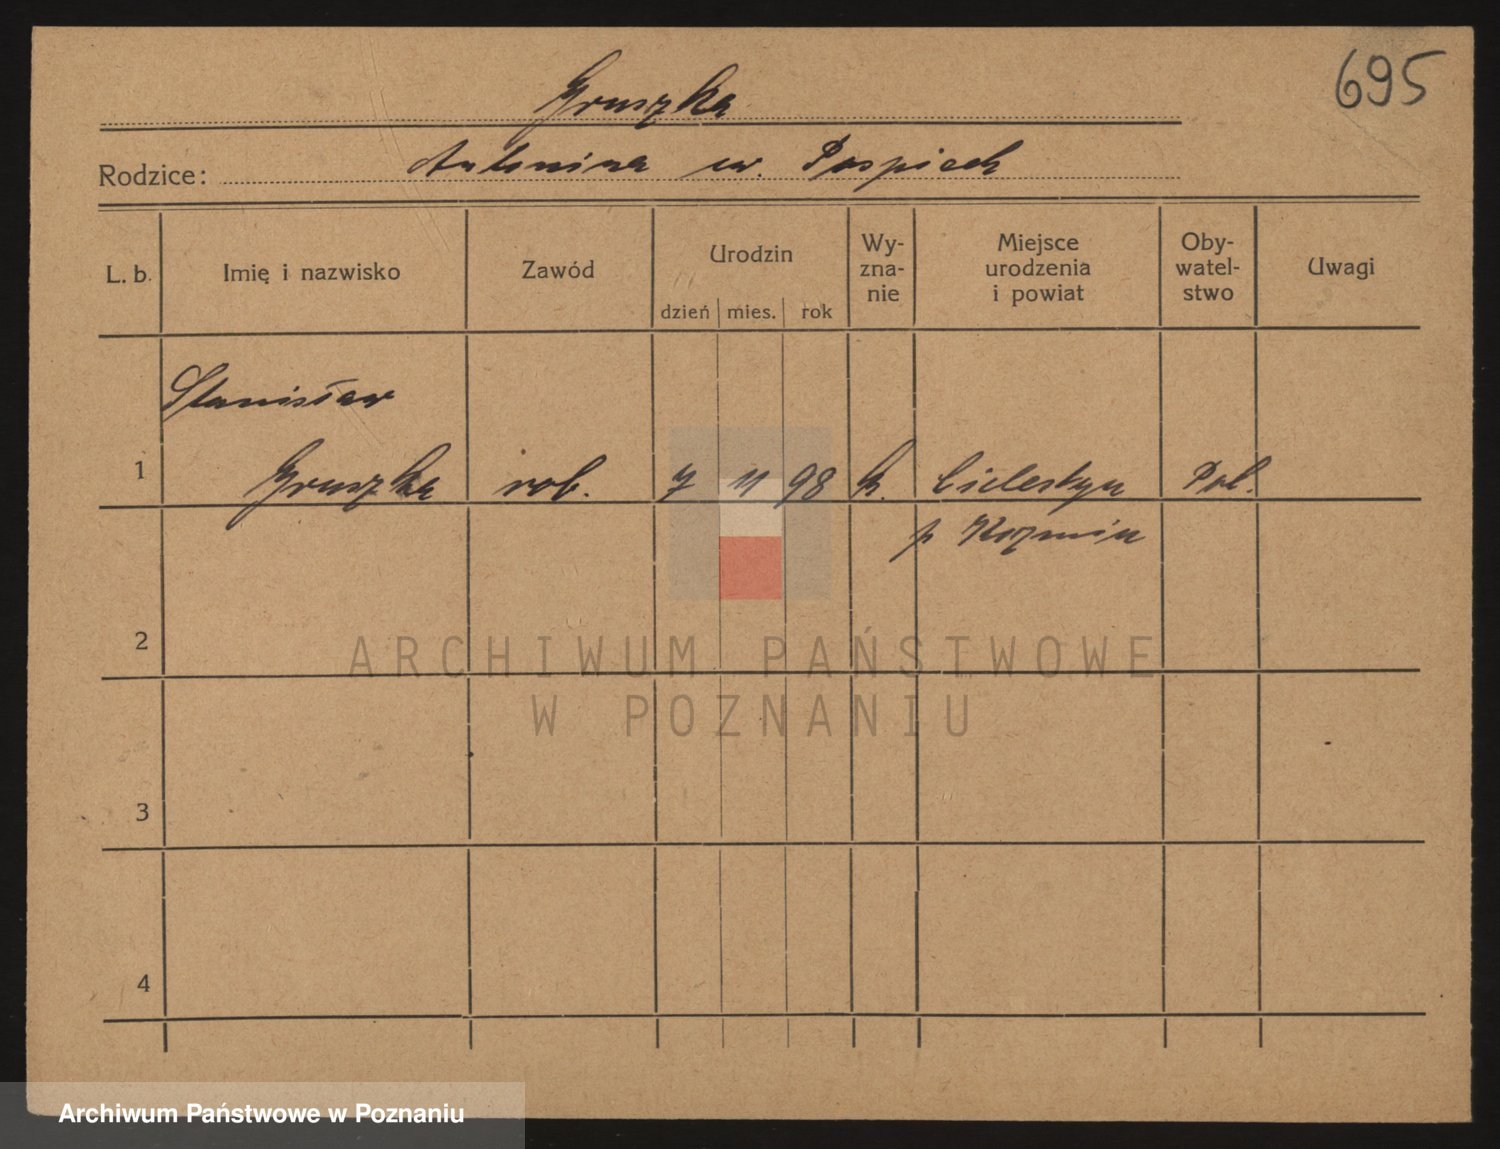 695
Gruszka
Rodzice: Antonina ur. Pospiech
L. b. Imię i nazwisko Zawód Urodzin dzień mies. rok Wy-zna-nie Miejsce urodzenia i powiat Oby-watel-stwo Uwagi
Stanisław
1 Gruszka rob. 7 11 98 k. Pol.
p Kozmin
2
ARCHIWUM PAŃSTWOWE
W POZNANIU
3
4
Archiwum Państwowe w Poznaniu